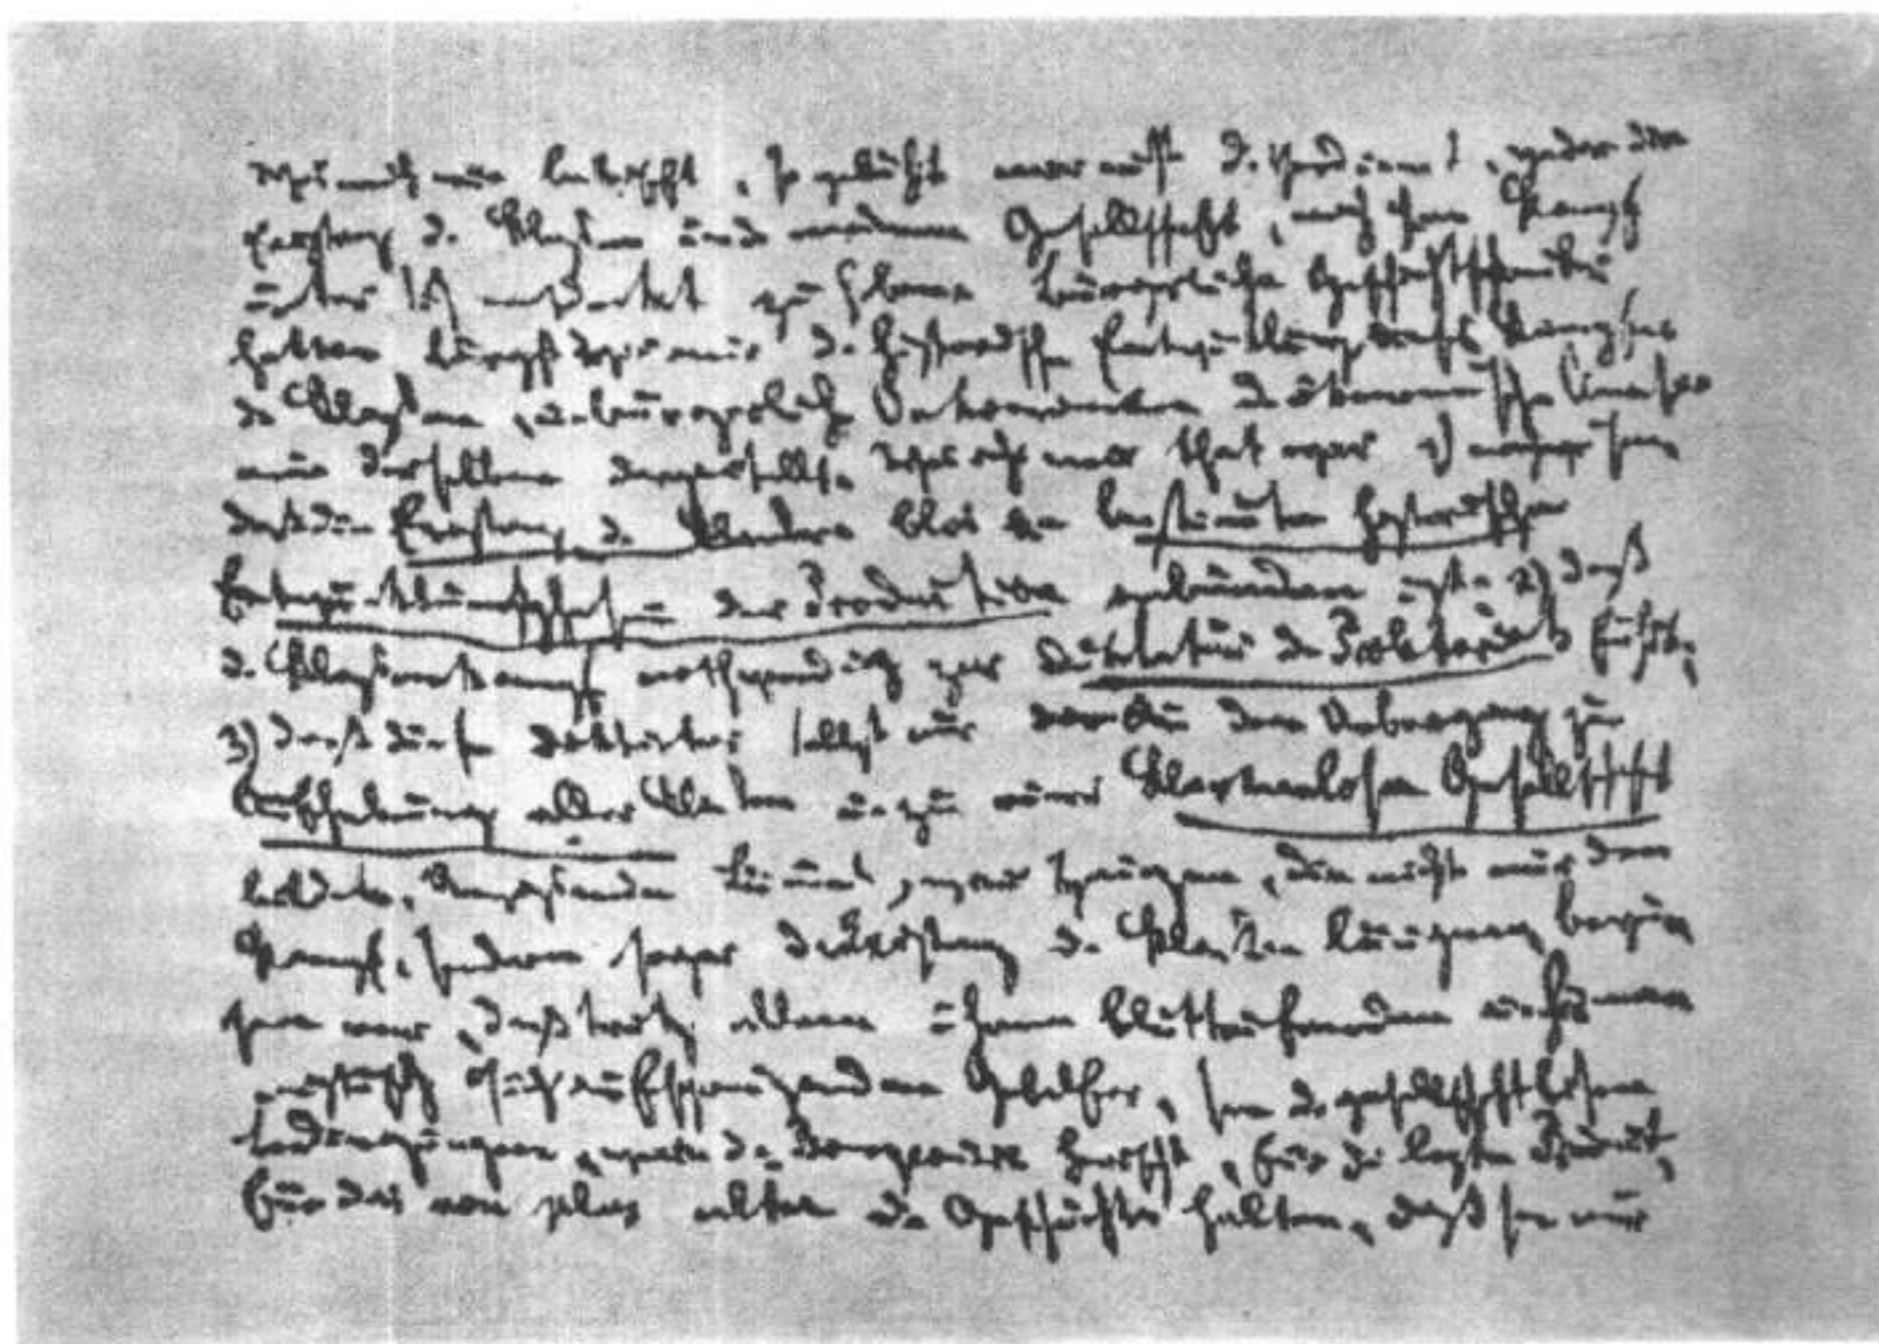 Was mich nun betrifft, so gebührt mir nicht d. Verdienst, weder die
Existenz d. Klassen in d. modernen Gesellschaft, noch ihren Kampf
unter sich entdeckt zu haben. Bürgerliche Geschichtschreiber
hatten längst vor mir d. historische Entwicklung dieses Kampfes
d. Klassen, u. bürgerliche Oekonomen d. ökonomische Anatomie
derselben dargestellt. Was ich neu that war 1) nachzuweisen
daß die Existenz d. Klassen blos an bestimmte historische
Entwicklungsphasen der Production gebunden ist; 2) daß
d. Klassenkampf nothwendig zur Diktatur des Proletariats führt;
3) daß diese Diktatur selbst nur den Uebergang zur
Aufhebung aller Klassen u. zu einer klassenlosen Gesellschaft
bildet. Lümmel, wie Heinzen, die nicht nur den
Kampf, sondern sogar die Existenz d. Klassen läugnen, beweisen
nur, daß trotz allem ihrem bluttriefenden
sich aufspreizenden Gebelfer, sie d. gesellschaftlichen
Bedingungen, worin d. Bourgeoisie herrscht, für d. letzte Product,
für das non plus ultra d. Geschichte halten, daß sie nur